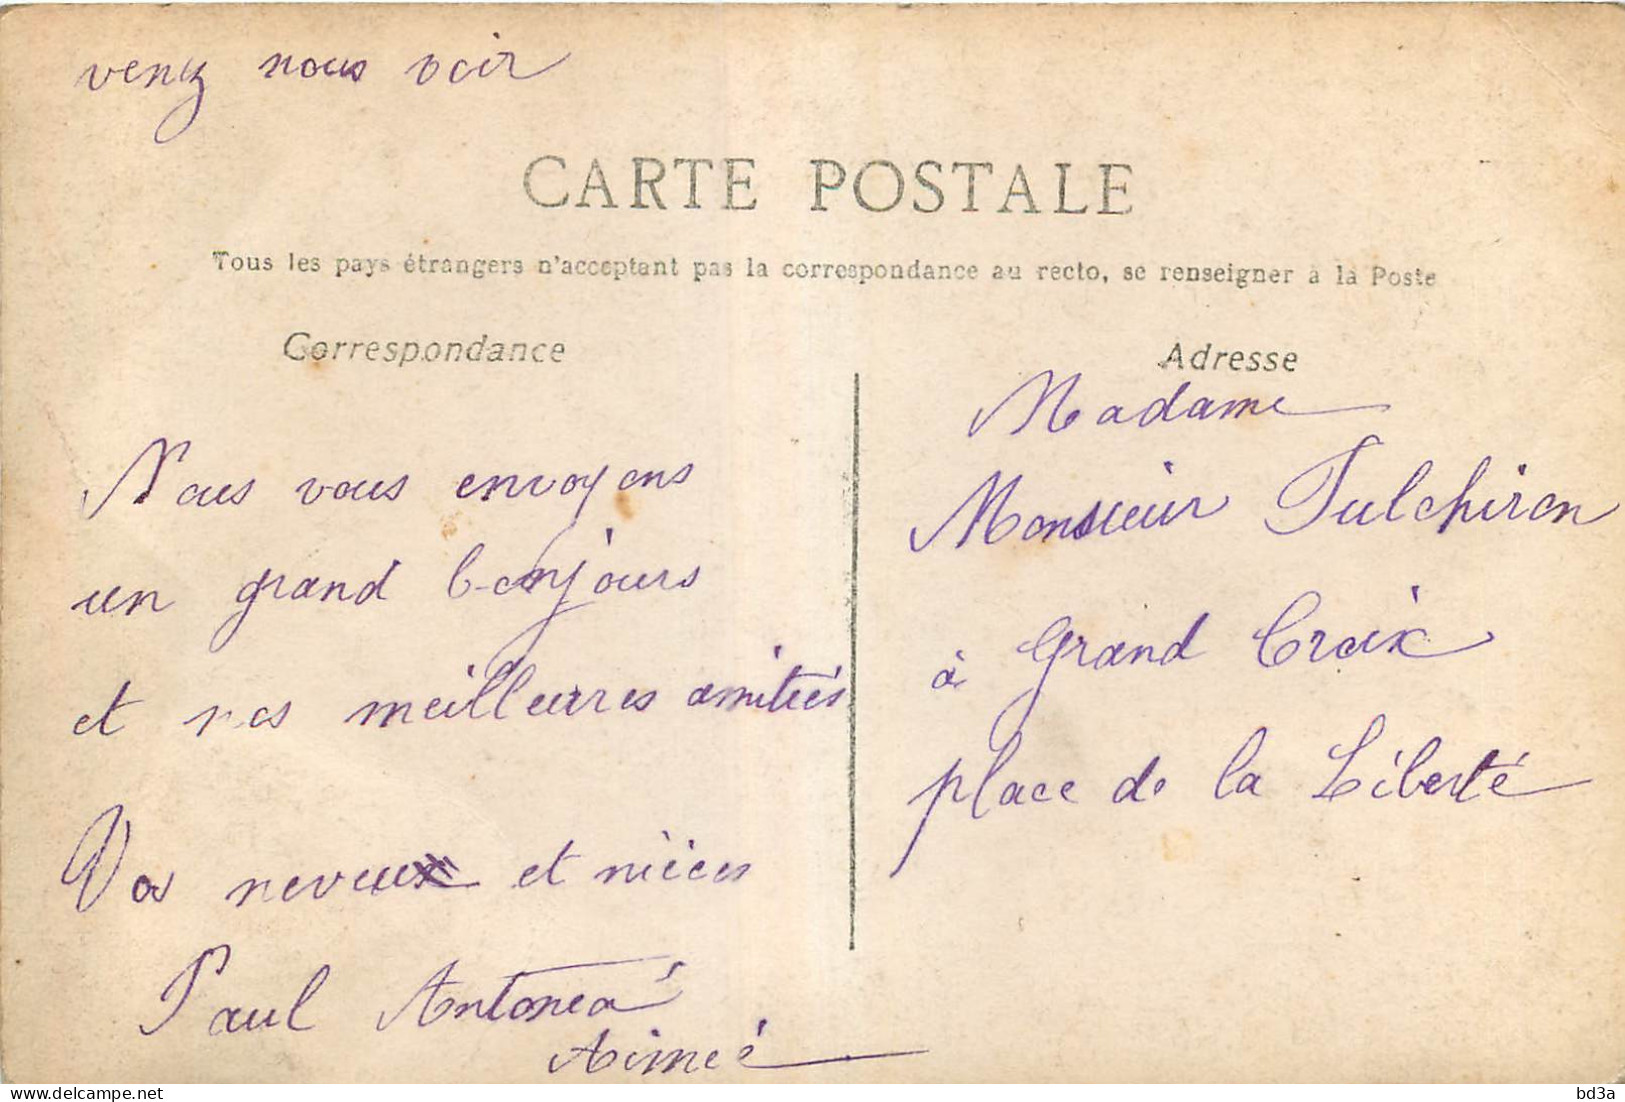 venez nous voir
CARTE POSTALE
Tous les pays étrangers n'acceptant pas la correspondance au recto, se renseigner à la Poste
Correspondance
Nous vous envoyons
un grand bonjours
et nos meilleures amitiés
Vos neveux et nièces
Paul Antonia
Aimeé
Adresse
Madame
Monsieur Fulchiron
à Grand Croix
place de la Liberté
bd3a